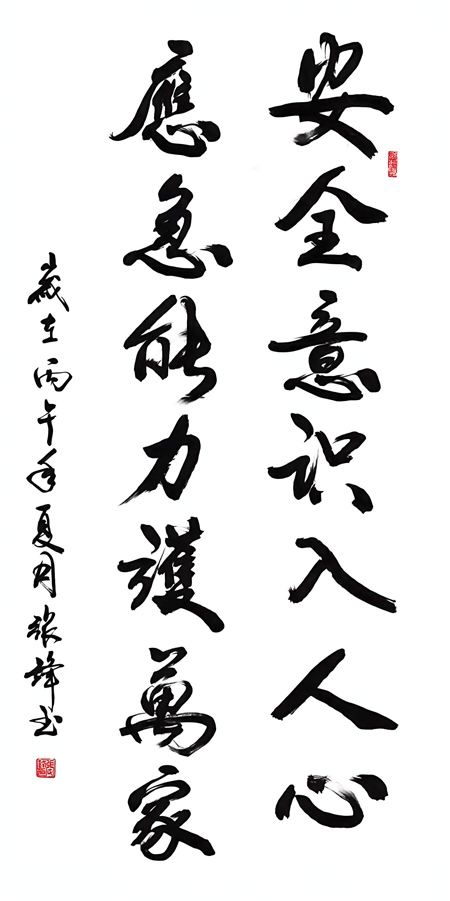 安全意识入人心
應急能力護萬家
歲在丙午年夏月張鋒书